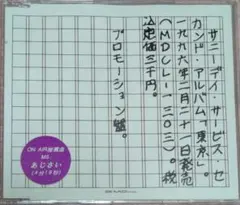 サニーデイ・サービス・セ
カンド・アルバム「東京」。
一九九六年二月二十一日発売
(MDCL-1303)。税
込定価三千円。
プロモーション盤。
ON AIR推薦曲
M5
あじさい
(4分18秒)